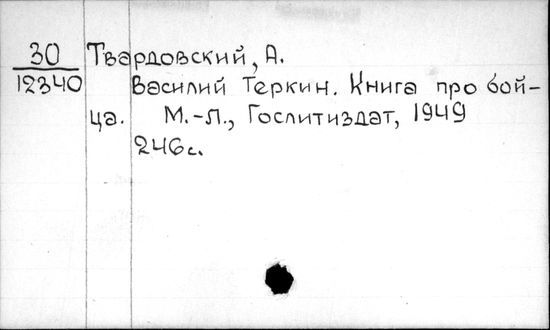 30 Твардовский, А.
12340 Василий Теркин. Книга про бой-
ца. М.-Л., Гослитиздат, 1949
246с.